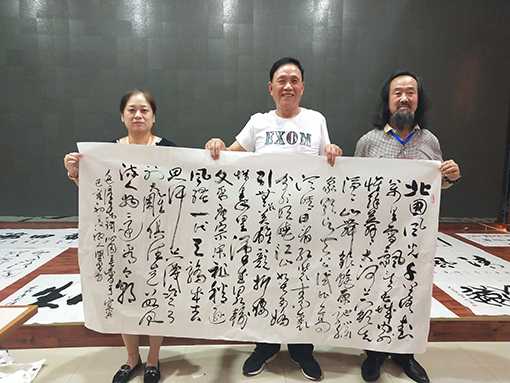 EXOM
北國風光千里冰封
万里雪飘望长城内外
惟余莽莽大河上下顿失
滔滔山舞银蛇原驰蜡
象欲与天公试比高
须晴日看红装素裹
分外妖娆江山如此多娇
引无数英雄竞折腰
惜秦皇汉武略输
文采唐宗宋祖稍逊
风骚一代天骄成吉
思汗只识弯弓
射大雕俱往矣数风
流人物还看今朝
毛泽东词沁园春雪